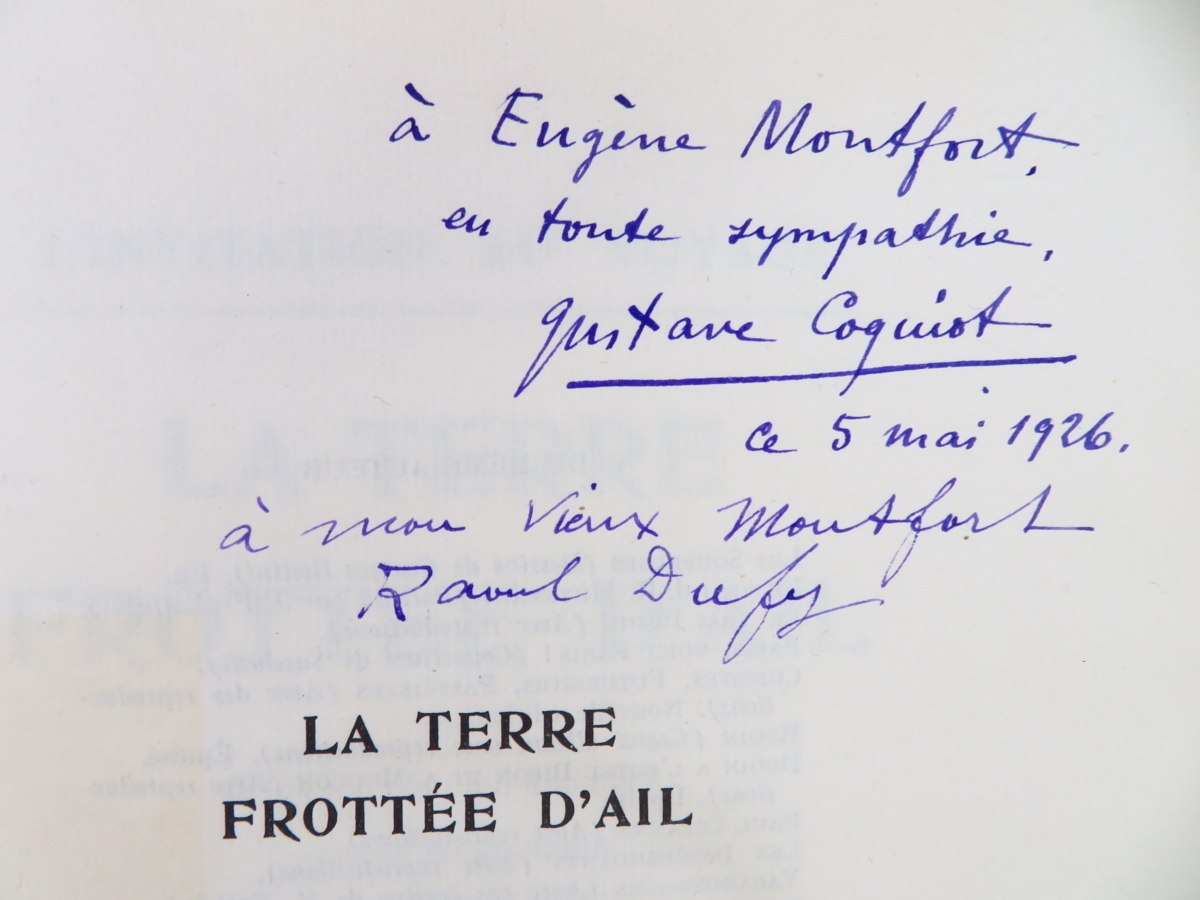 à Eugène Montfort,
en toute sympathie,
Gustave Coquiot
ce 5 mai 1926.
à mon vieux Montfort
Raoul Dufy
LA TERRE
FROTTÉE D'AIL